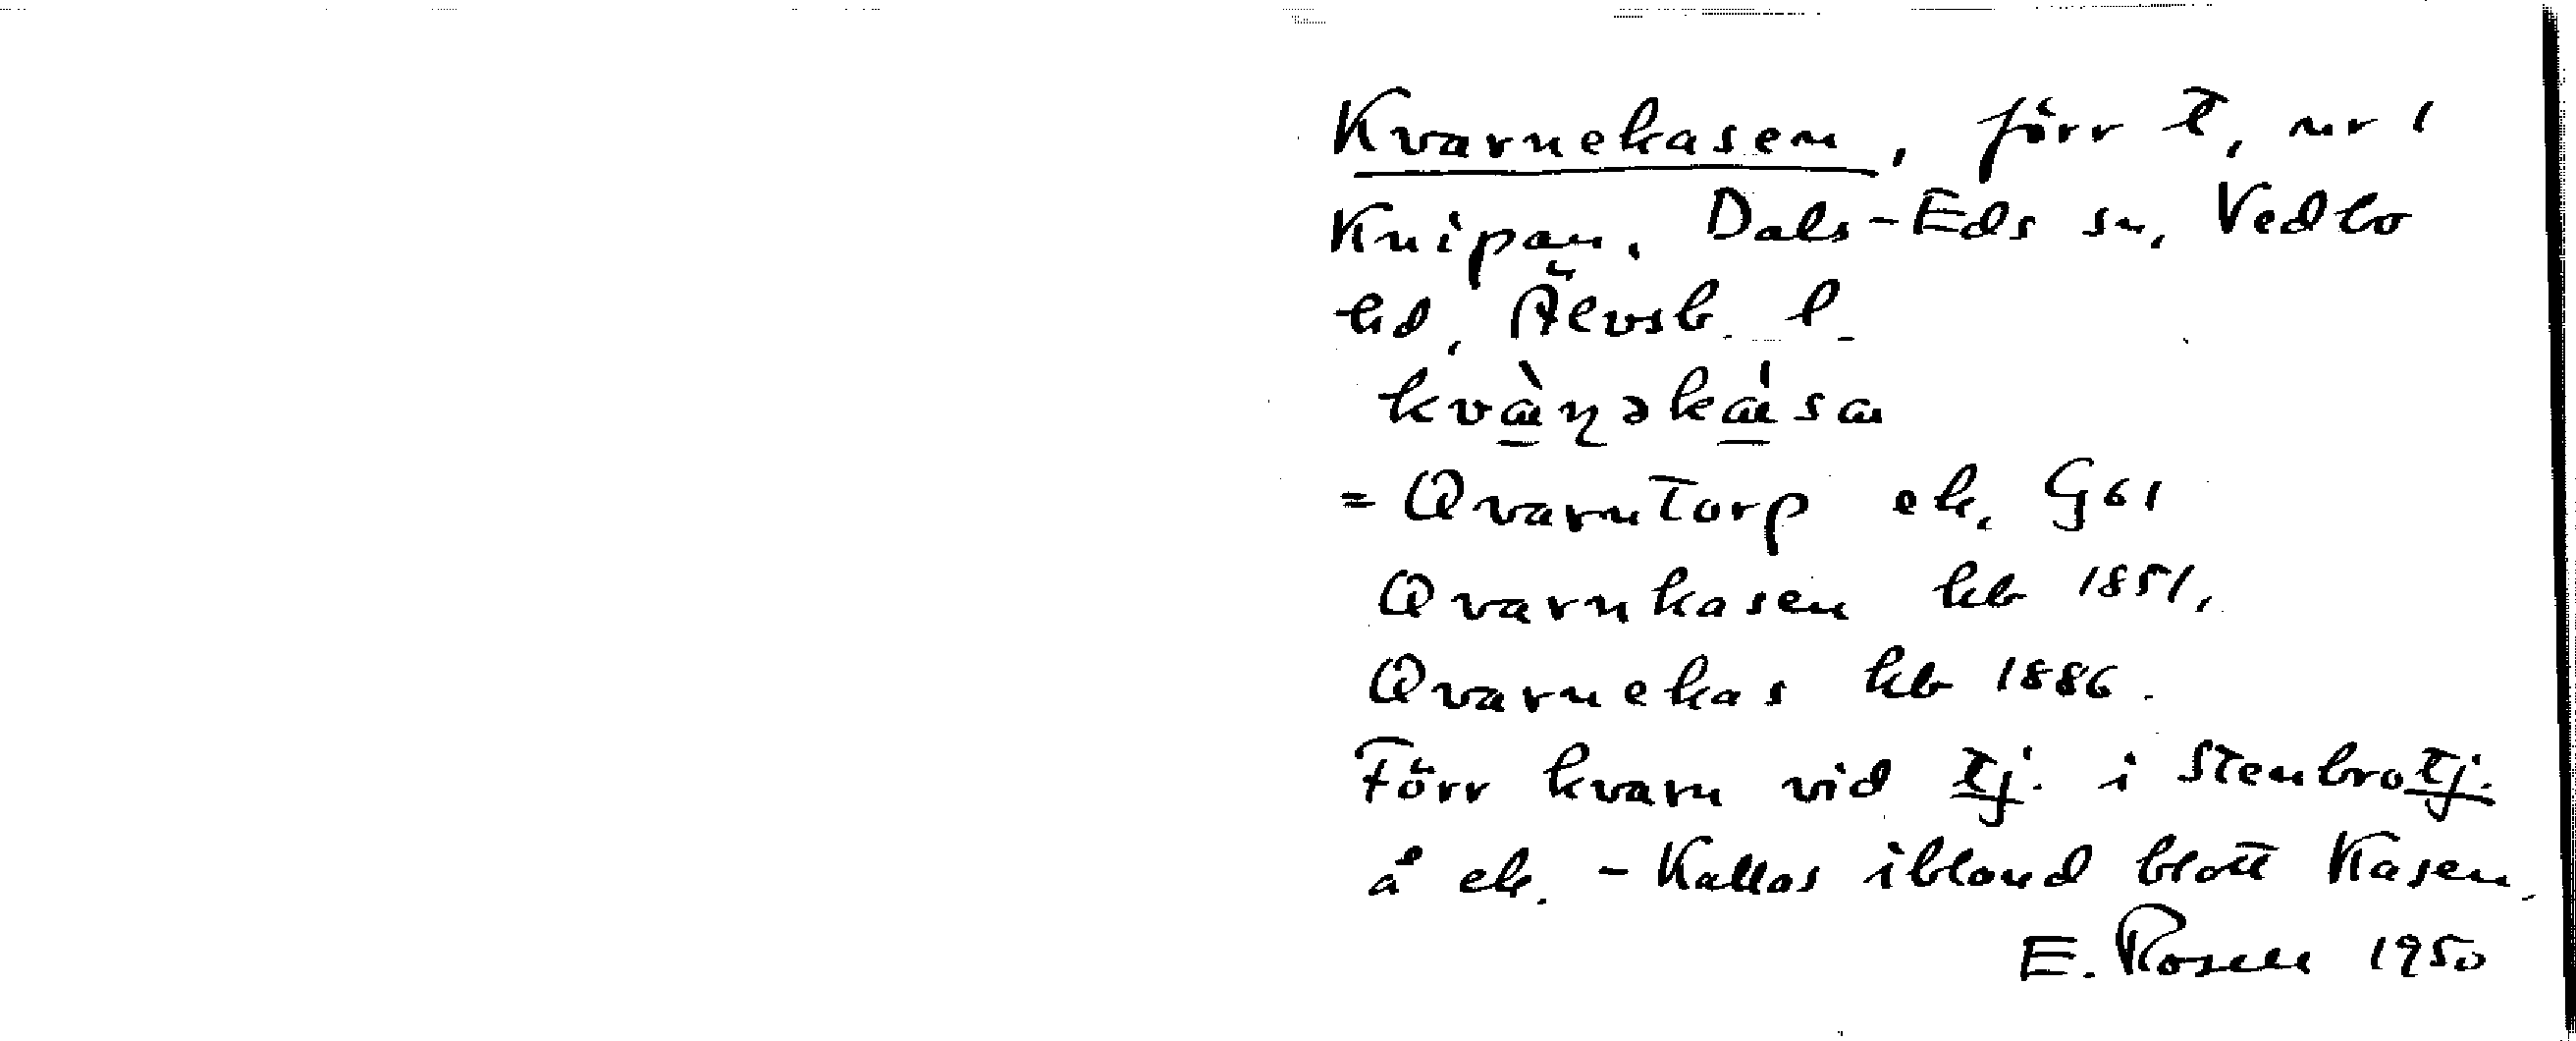 Kvarnekasen, förr t, nr 1
Knipan, Dals-Eds sn, Vedbo
hd, Älvsb. l.
kvàɳəkása
= Qvarntorp ek. G61
Qvarnkasen kb 1851,
Qvarnekas kb 1886.
Förr kvarn vid tj. i Stenbrotj.
å ek. - Kallas ibland blott Kasen.
E. Rosell 1950